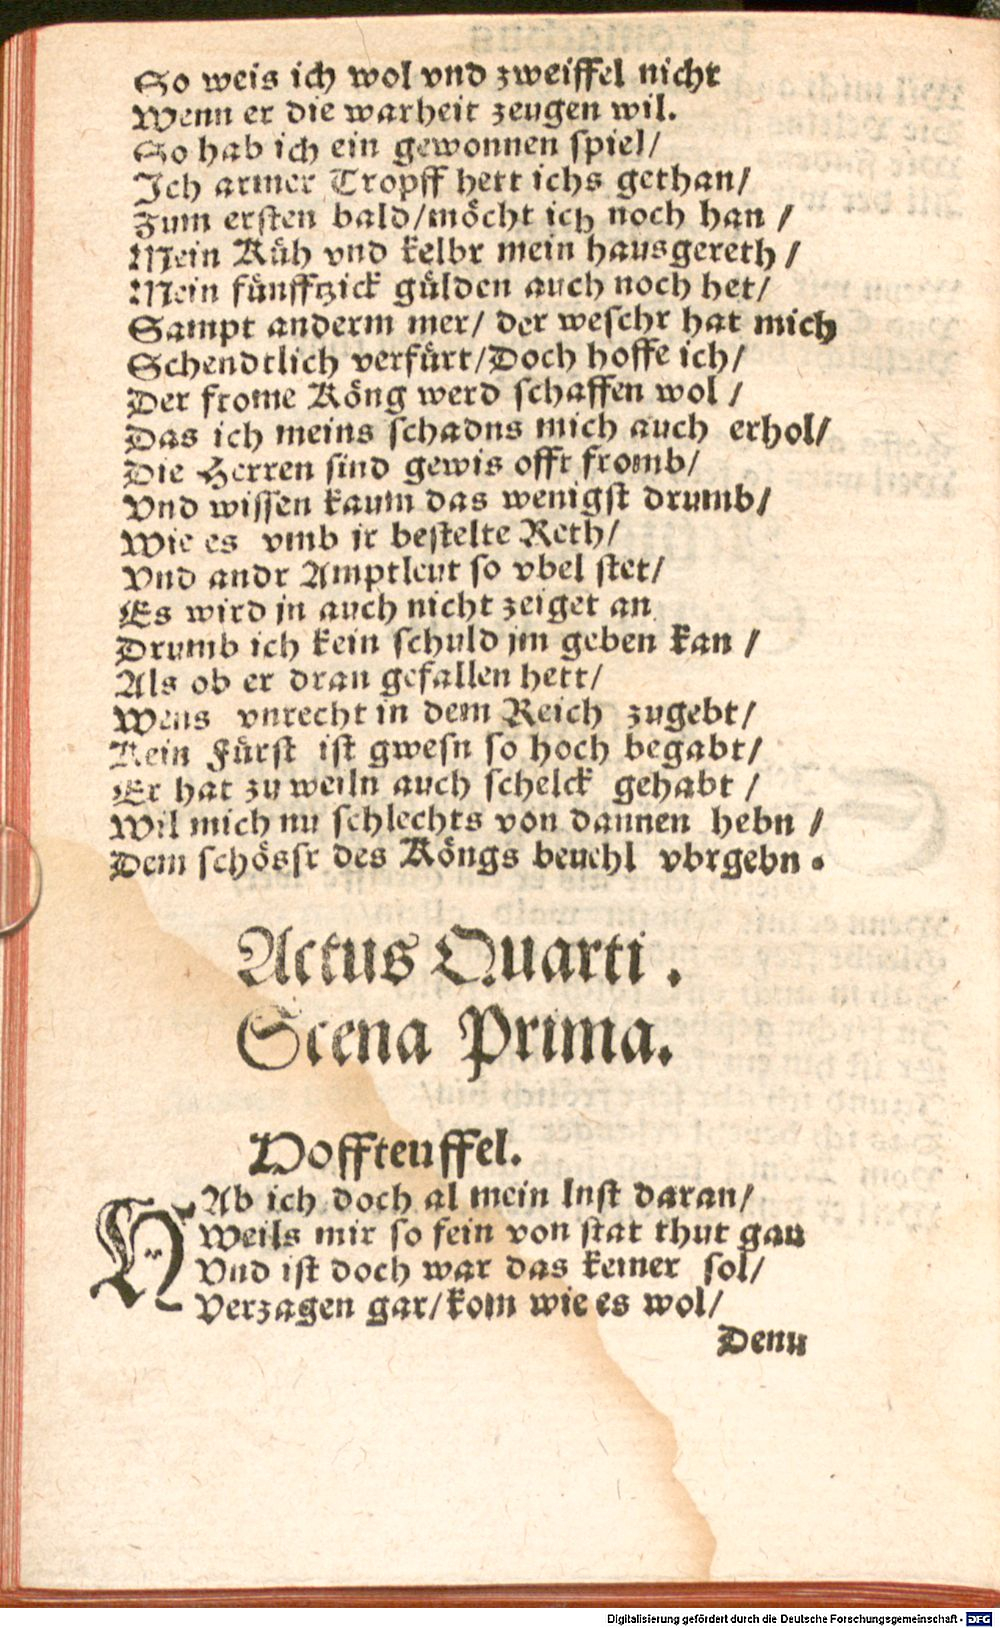 So weis ich wol vnd zweiffel nicht
Wenn er die warheit zeugen wil.
So hab ich ein gewonnen spiel/
Ich armer Tropff hett ichs gethan/
Zum ersten bald/möcht ich noch han /
Mein Küh vnd kelbr mein hausgereth /
Mein fünfftzick gülden auch noch het/
Sampt anderm mer/ der weschr hat mich
Schendtlich verfürt/Doch hoffe ich/
Der frome Köng werd schaffen wol /
Das ich meins schadns mich auch erhol/
Die Herren sind gewis offt fromb/
Vnd wissen kaum das wenigst drumb/
Wie es vmb jr bestelte Reth/
Vnd andr Amptleut so vbel stet/
Es wird jn auch nicht zeiget an
Drumb ich kein schuld jm geben kan /
Als ob er dran gefallen hett/
Wens vnrecht in dem Reich zugebt/
Kein Fürst ist gwesn so hoch begabt/
Er hat zu weiln auch schelck gehabt /
Wil mich nu schlechts von dannen hebn /
Dem schössr des Köngs beuehl vbrgebn.
Actus Quarti.
Scena Prima.
Hoffteuffel.
HAb ich doch al mein lust daran/
Weils mir so fein von stat thut gan
Vnd ist doch war das keiner sol/
Verzagen gar/kom wie es wol/
Denn
Digitalisierung gefördert durch die Deutsche Forschungsgemeinschaft - DFG